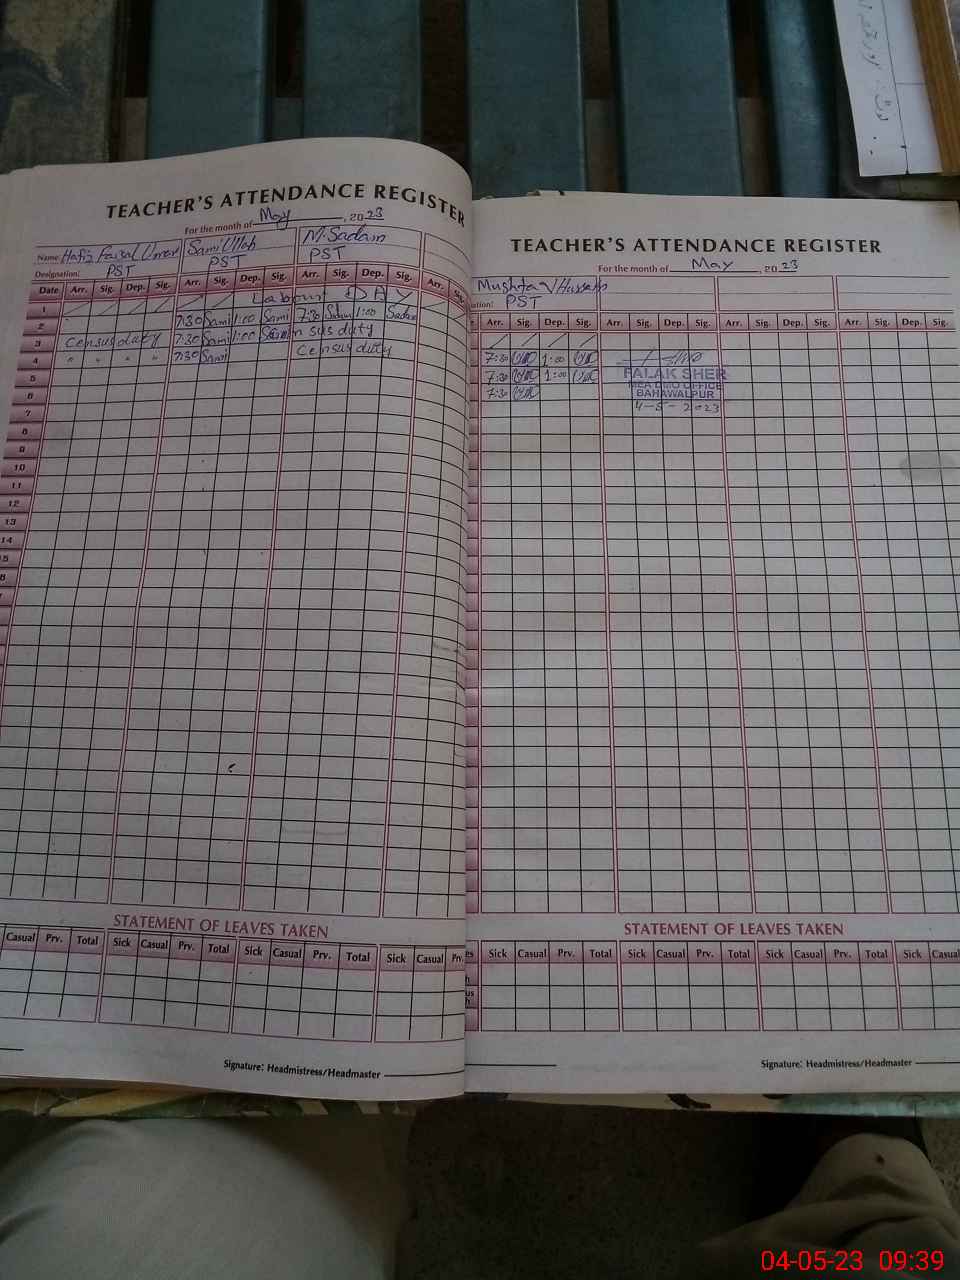 TEACHER'S ATTENDANCE REGISTER
For the month of May, 2023
Name Hafiz Faisal Umar Sami Ullah M. Sadam
Designation: PST PST PST
Date Arr. Sig. Dep. Sig. Arr. Sig. Dep. Sig. Arr. Sig. Dep. Sig. Arr. Sig.
1 Labour DAY
2 7:30 Sami 1:00 Sami 7:30 Sadam 1:00 Sadam
3 Census duty 7:30 Sami 1:00 Sami Census duty
4 " " " " 7:30 Sami Census duty
5
6
7
8
9
10
11
12
13
14
15
STATEMENT OF LEAVES TAKEN
Casual Prv. Total Sick Casual Prv. Total Sick Casual Prv. Total Sick Casual Prv.
Signature: Headmistress/Headmaster
TEACHER'S ATTENDANCE REGISTER
For the month of May, 2023
Mushtaq Hussain
PST
Arr. Sig. Dep. Sig. Arr. Sig. Dep. Sig. Arr. Sig. Dep. Sig. Arr. Sig. Dep. Sig.
7:30 1:00
7:30 1:00
7:30
FALAK SHER
MEA DMO OFFICE
BAHAWALPUR
4-5-2023
STATEMENT OF LEAVES TAKEN
Sick Casual Prv. Total Sick Casual Prv. Total Sick Casual Prv. Total Sick Casual
Signature: Headmistress/Headmaster
04-05-23 09:39